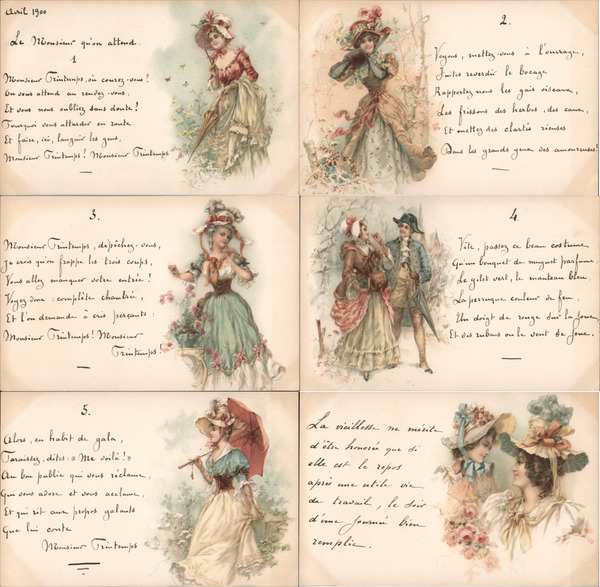 Avril 1900
Le Monsieur qu'on attend.
1
Monsieur Printemps, où courez-vous!
On vous attend au rendez-vous,
Et vous nous oubliez sans doute!
Pourquoi vous attarder en route
Et faire, ici, languir les gens,
Monsieur Printemps! Monsieur Printemps
2.
Voyons, mettez-vous à l'ouvrage,
Faites reverdir le bocage
Rapportez nous les gais oiseaux,
Les frissons des herbes, des eaux,
Et mettez des clartés rieuses
Dans les grands yeux des amoureuses!
3.
Monsieur Printemps, dépêchez-vous,
Je crois qu'on frappe les trois coups,
Vous allez manquer votre entrée!
Voyez donc: complète chambrée,
Et l'on demande à cris perçants:
Monsieur Printemps! Monsieur
Printemps!
4.
Vite, passez ce beau costume
Qu'un bouquet de muguet parfume,
Le gilet vert, le manteau bleu,
La perruque couleur de feu,
Un doigt de rouge sur la joue,
Et des rubans où le vent se joue.
5.
Alors, en habit de gala,
Paraissez, dites: « Me voilà! »
Au bon public qui vous réclame,
Qui vous adore et vous acclame,
Et qui rit aux propos galants
Que lui conte
Monsieur Printemps
La vieillesse ne mérite
d'être honorée que si
elle est le repos
après une utile vie
de travail, le soir
d'une journée bien
remplie.